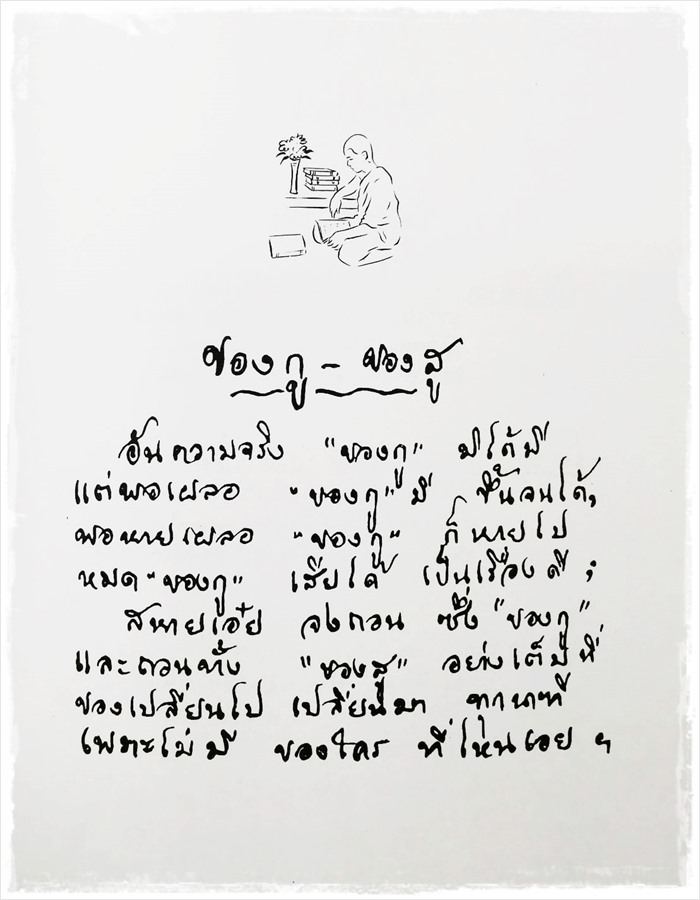 ของกู - ของสู
อันความจริง "ของกู" มิได้มี
แต่พอเผลอ "ของกู" มี ขึ้นจนได้,
พอหายเผลอ "ของกู" ก็หายไป
หมด "ของกู" เสียได้ เป็นเรื่องดี ;
สหายเอ๋ย จงถอน ซึ่ง "ของกู"
และถอนทั้ง "ของสู" อย่างเต็มที่
ของเปลี่ยนไป เปลี่ยนมา ทุกนาที
เพราะไม่มี ของใคร ที่ไหนเอย ฯ